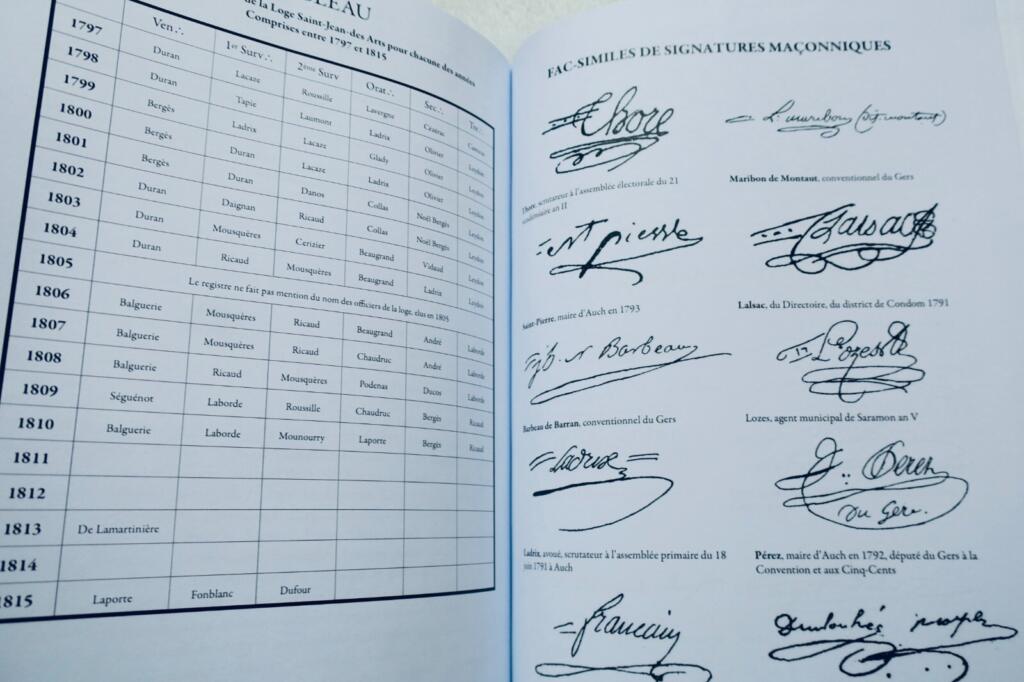 de la Loge Saint-Jean-des-Arts pour chacune des années
Comprises entre 1797 et 1815
Ven∴ 1er Surv∴ 2ème Surv Orat∴ Sec∴
1797 Duran Lacaze Roussille Lavergne
1798 Duran Tapie Laumont Ladrix Olivier Leydon
1799 Bergès Ladrix Lacaze Glady Olivier Leydon
1800 Bergès Duran Lacaze Ladrix Olivier Leydon
1801 Bergès Duran Danos Collas Noël Bergès Leydon
1802 Duran Daignan Ricaud Collas Noël Bergès Leydon
1803 Duran Mousquères Cerizier Beaugrand Vidaud Leydon
1804 Duran Ricaud Mousquères Beaugrand Ladrix Leydon
1805 Le registre ne fait pas mention du nom des officiers de la loge, élus en 1805
1806 Balguerie Mousquères Ricaud Beaugrand André Laborde
1807 Balguerie Mousquères Ricaud Chaudruc André Laborde
1808 Balguerie Ricaud Mousquères Podenas Ducos Laborde
1809 Séguénot Laborde Roussille Chaudruc Bergès Ricaud
1810 Balguerie Laborde Mounourry Laporte Bergès Ricaud
1811
1812
1813 De Lamartinière
1814
1815 Laporte Fonblanc Dufour
FAC-SIMILES DE SIGNATURES MAÇONNIQUES
Thore
Thore, scrutateur à l'assemblée électorale du 21
vendémiaire an II
Maribon de Montaut, conventionnel du Gers
St pierre
Saint-Pierre, maire d'Auch en 1793
Lalsac
Lalsac, du Directoire, du district de Condom 1791
jb. Barbeau
Barbeau de Barran, conventionnel du Gers
Lozes
Lozes, agent municipal de Saramon an V
Ladrix
Ladrix, avoué, scrutateur à l'assemblée primaire du 18
juin 1791 à Auch
Perez
Du Gers.
Pérez, maire d'Auch en 1792, député du Gers à la
Convention et aux Cinq-Cents
francain